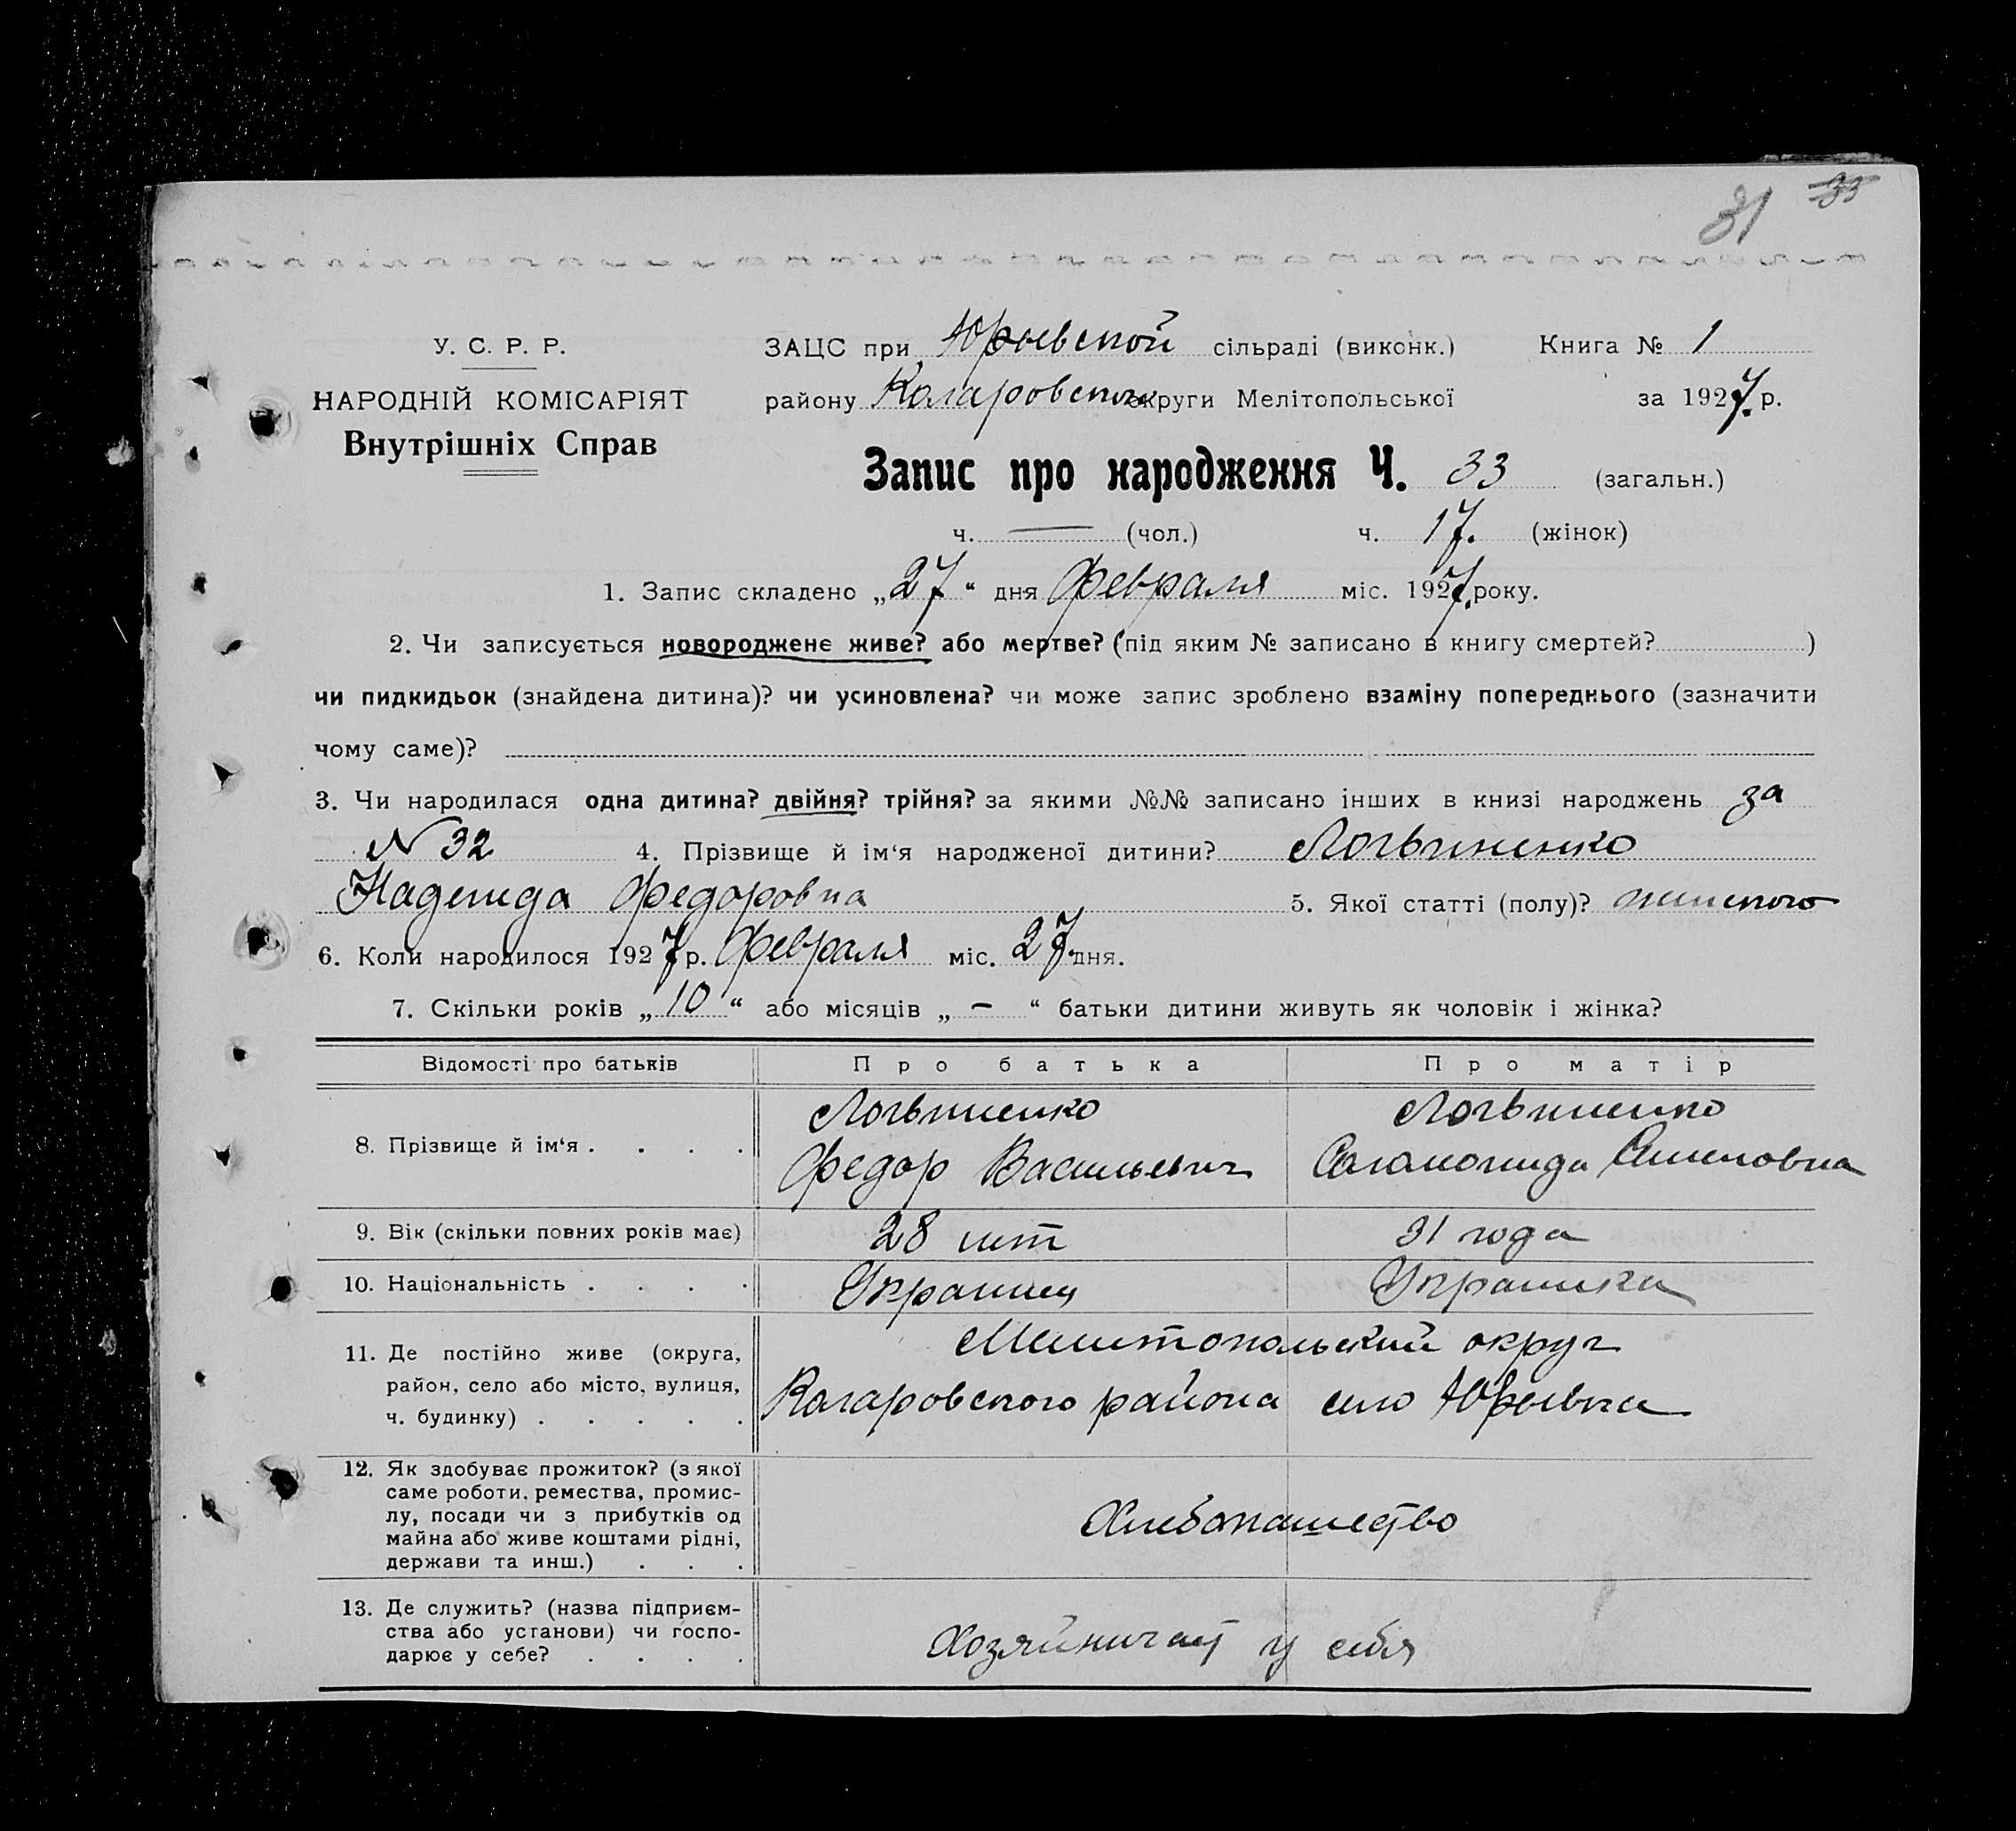 31 33
У. С. Р. Р.
НАРОДНІЙ КОМІСАРІЯТ
Внутрішніх Справ
ЗАЦС при Юрьевской сільраді (виконк.) Книга № 1
району Коларовского округи Мелітопольської за 1927 р.
Запис про народження Ч. 33 (загальн.)
ч. — (чол.) ч. 17. (жінок)
1. Запис складено „27“ дня Февраля міс. 1927 року.
2. Чи записується новороджене живе? або мертве? (під яким № записано в книгу смертей? )
чи пидкидьок (знайдена дитина)? чи усиновлена? чи може запис зроблено взаміну попереднього (зазначити
чому саме)?
3. Чи народилася одна дитина? двійня? трійня? за якими №№ записано інших в книзі народжень за
N 32 4. Прізвище й ім‘я народженої дитини? Логвиненко
Надежда Федоровна 5. Якої статті (полу)? женского
6. Коли народилося 1927 р. Февраля міс. 27 дня.
7. Скільки років „10“ або місяців „—“ батьки дитини живуть як чоловік і жінка?
Відомості про батьків Про батька Про матір
8. Прізвище й ім‘я . . . . Логвиненко Логвиненко
Федор Васильевич Соломонида Семеновна
9. Вік (скільки повних років має) 28 лет 31 года
10. Національність . . . . Украинец Украинка
11. Де постійно живе (округа, район, село або місто, вулиця, ч. будинку) . . . . . Мелитопольский округ
Коларовского района село Юрьевка
12. Як здобуває прожиток? (з якої саме роботи, ремества, промислу, посади чи з прибутків од майна або живе коштами рідні, держави та инш.) . . . Хлебопашество
13. Де служить? (назва підприємства або установи) чи господарює у себе? . . . . Хозяйничает у себя